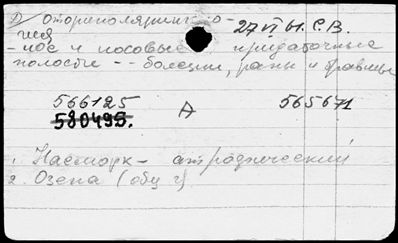 Оториноларинголо- 27 VI 61. С.В.
гия
- нос и носовые придаточные
полости -- болезни, раны и травмы
566125 А 565671
580495.
1. Насморк - атрофический
2. Озена (общ